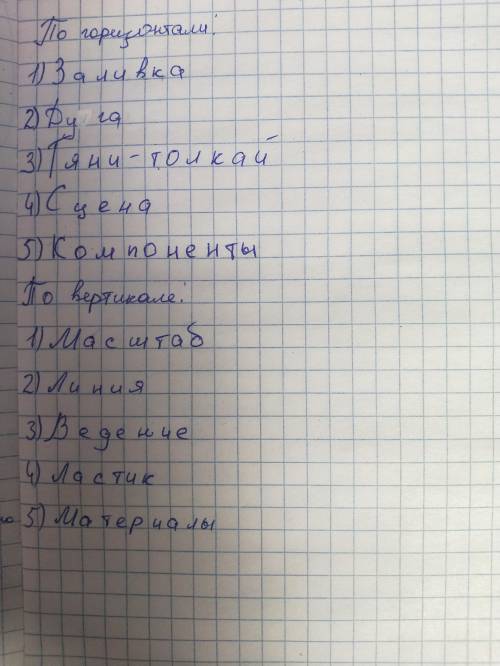 По горизонтали:
1) Заливка
2) Дуга
3) Тяни-толкай
4) Сцена
5) Компоненты
По вертикале:
1) Масштаб
2) Линия
3) Ведение
4) Ластик
5) Материалы